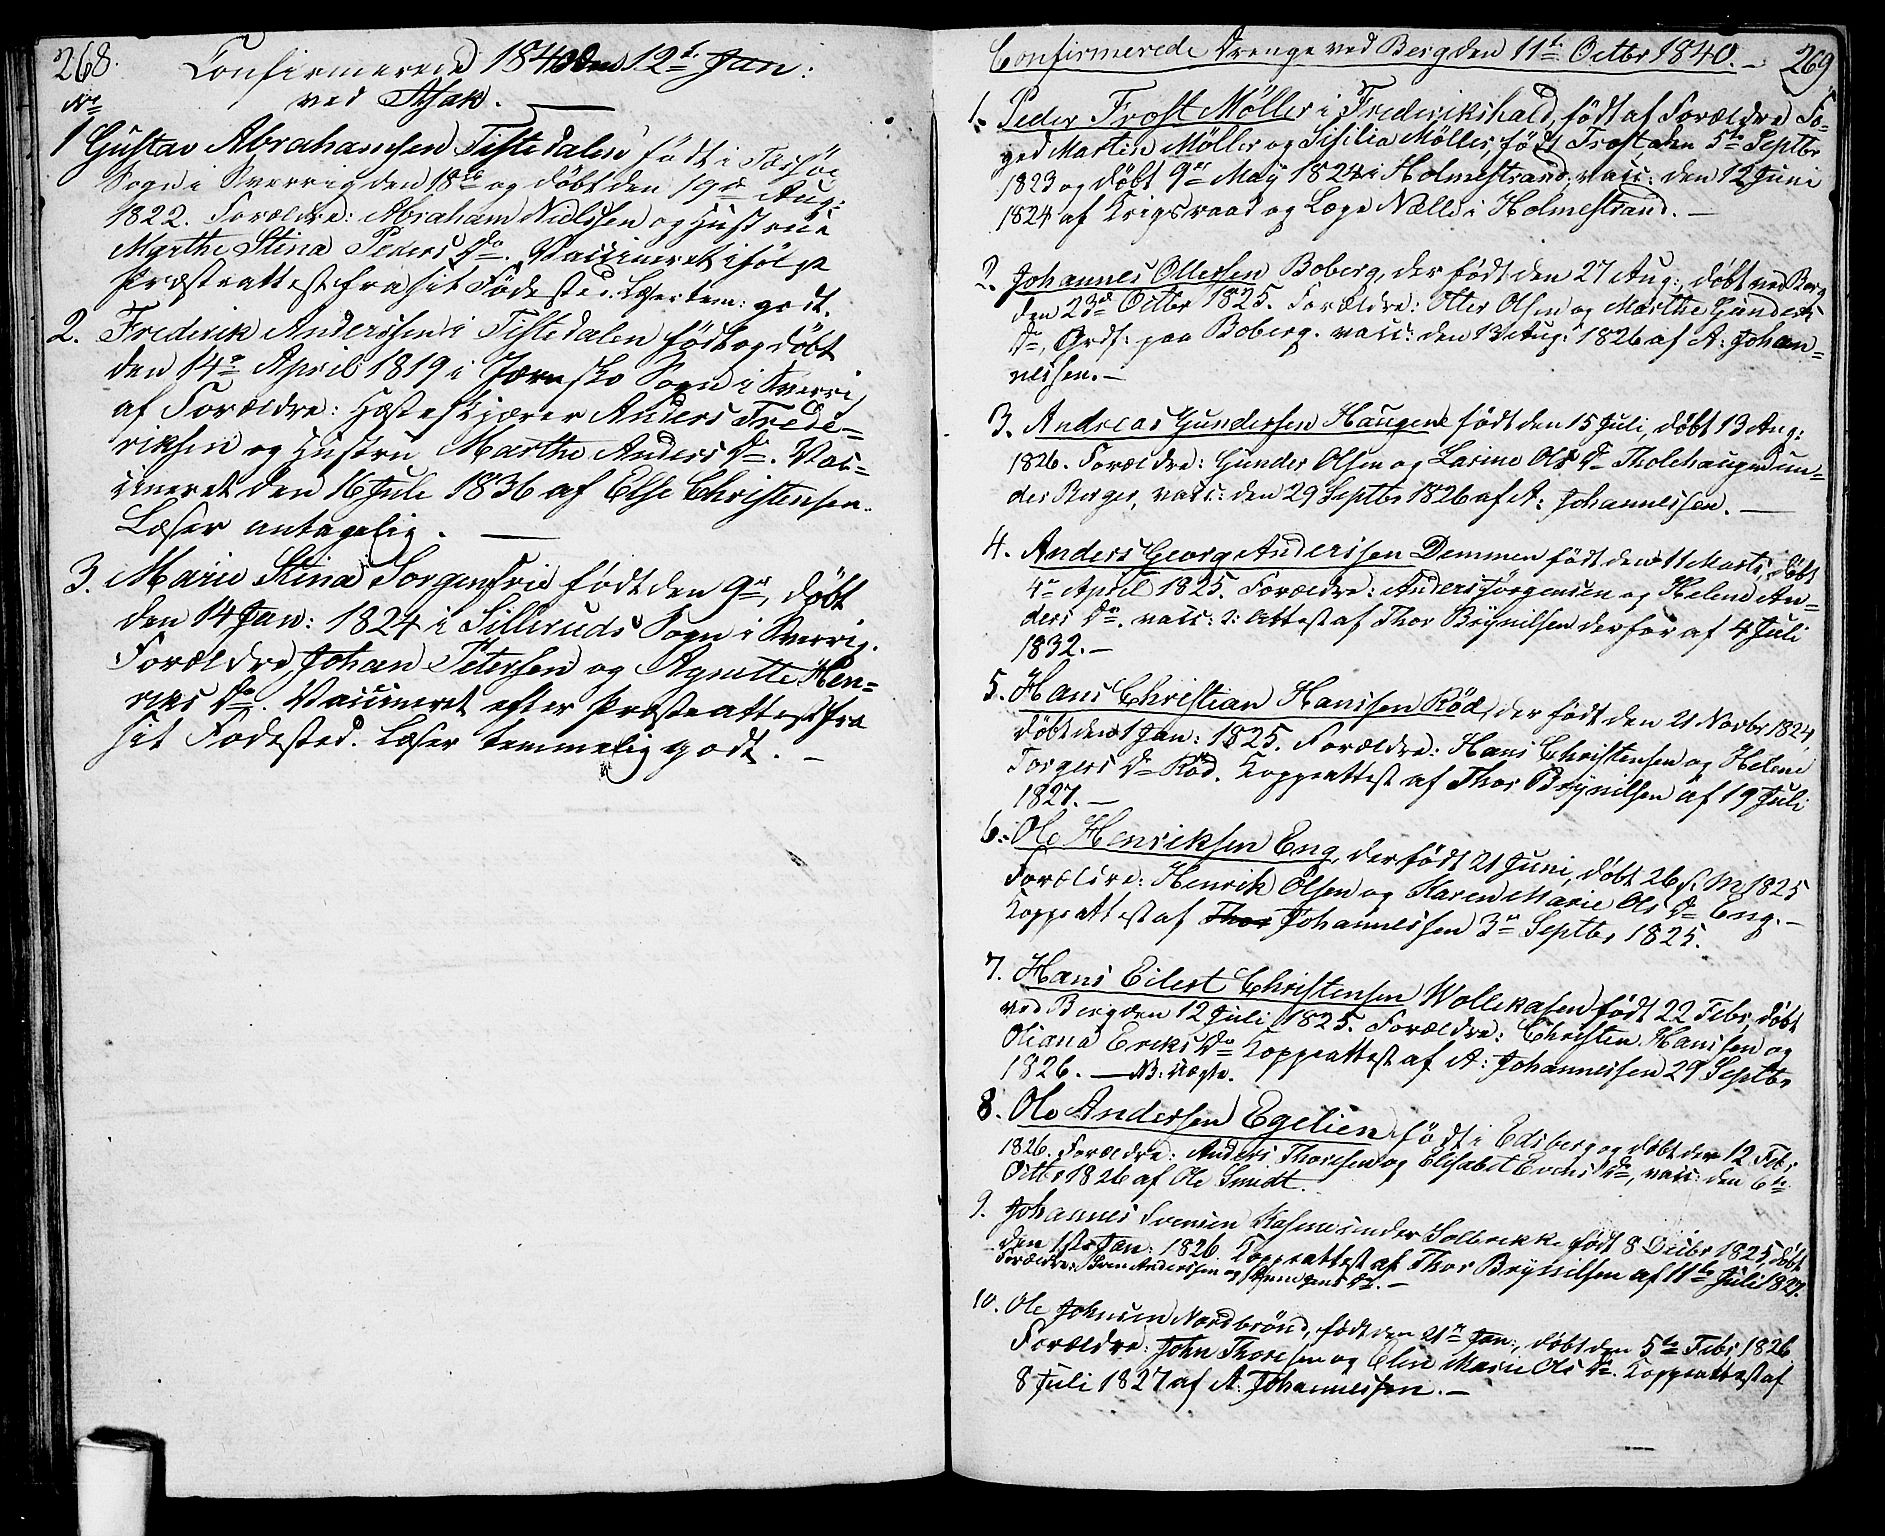 268.
Confirmerede 1840 den 12t Jan:
No ved Aſak.
1 Gustav Abrahamsen Tistedalen født i
Sogn i Sverrig den 18de og døbt den 19de Aug:
1822. Forældre: Abraham Nielssen og Hustrue
Marthe Stina Peders Dr. Vaccineret ifølge
Præsteattest fra sit Fødested. Læser tem: godt.
2. Frederik Anderssen i Tistedalen født og døbt
den 14de April 1819 i Jernsko Sogn i Sverrig
af Forældre: Hesteskjærer Anders Frede=
riksen og Hustru Marthe Anders Dr. Vac=
cineret den 16 Jule 1836 af Else Christensen.
Læser antagelig.
3. Marie Stina Sorgenfrie født den 9de, døbt
den 14 Jan: 1824 i Silleruds Sogn i Sverrig.
Forældre Johan Petersen og Agnette Hen=
riks Dr. Vaccineret efter Præsteattest fra
sit Fødested. Læser temmelig godt.
Confirmerede Drenge ved Berg den 11t Octbr 1840. 269
1. Peder Frost Møller i Frederikshald, født af Forældre Fo=
ged Martin Møller og Sisilia Møller, født Frost, den 5te Septbr
1823 og døbt 9de May 1824 i Holmestrand, vacc: den 12 Juni
1824 af Krigsraad og Læge Nælle i Holmestrand.
2. Johannes Ollessen Boberg, der født den 27 Aug:, døbt ved Berg
den 23de Octbr 1825. Forældre: Olter Olsen og Marthe Gunders
Dr, Ords: paa Boberg. vacc: den 13 Aug: 1826 af A: Johan=
nessen.
3. Andreas Gundersen Haugene født den 15 Juli, døbt 13 Aug:
1826. Forældre: Gunder Olsen og Larine Ols Dr Tholehaugen un=
der Berger, vacc: den 29 Septbr 1826 af A: Johannessen.
4. Anders Georg Anderssen Demmen født den 11 Marts, døbt
4de April 1825. Forældre: Anders Jørgensen og Helene An=
ders Dr. vacc: 2: Attest af Thor Brynilsen derfor af 4 Juli
1832.
5. Hans Christian Hanssen Röd, der født den 21 Novbr 1824,
døbt den 1 Jan: 1825. Forældre: Hans Christensen og Helene
Torgers Dr Röd. Koppeattest af Thor Brynilsen af 19 Juli
1827.
6. Ole Henriksen Eng, der født 21 Juni, døbt 26 s. M. 1825
Forældre: Henrik Olsen og Karen Marie Ols Dr Eng.
Koppeattest af Thor Johannessen 3de Septbr 1825.
7. Hans Eilert Christensen Wollekasen født 22 Febr, døbt
ved Berg den 12 Juli 1825. Forældre: Christen Hanssen og
Oliana Eriks Dr Koppeattest af A: Johannessen 29 Septbr
1826.
8. Ole Andersen Egelien født i Edsberg og døbt den 12 Febr
1826. Forældre: Anders Thoresen og Elisabet Evens Dr, vacc: den 6te
Octbr 1826 af Ole Smedt.
9. Johannes Svensen Kasene under Solbrekke født 8 Decbr 1825, døbt
den 1ste Jan: 1826. Koppeattest af Thor Brynilsen af 11te Juli 1827.
Forældre: Sven Anderssen og
10. Ole Johnsen Nordbrönd, født den 21de Jan:, døbt den 5te Febr 1826
Forældre: John Thoresen og Elen Marie Ols Dr. Koppeattest af
8 Juli 1827 af A: Johannessen.